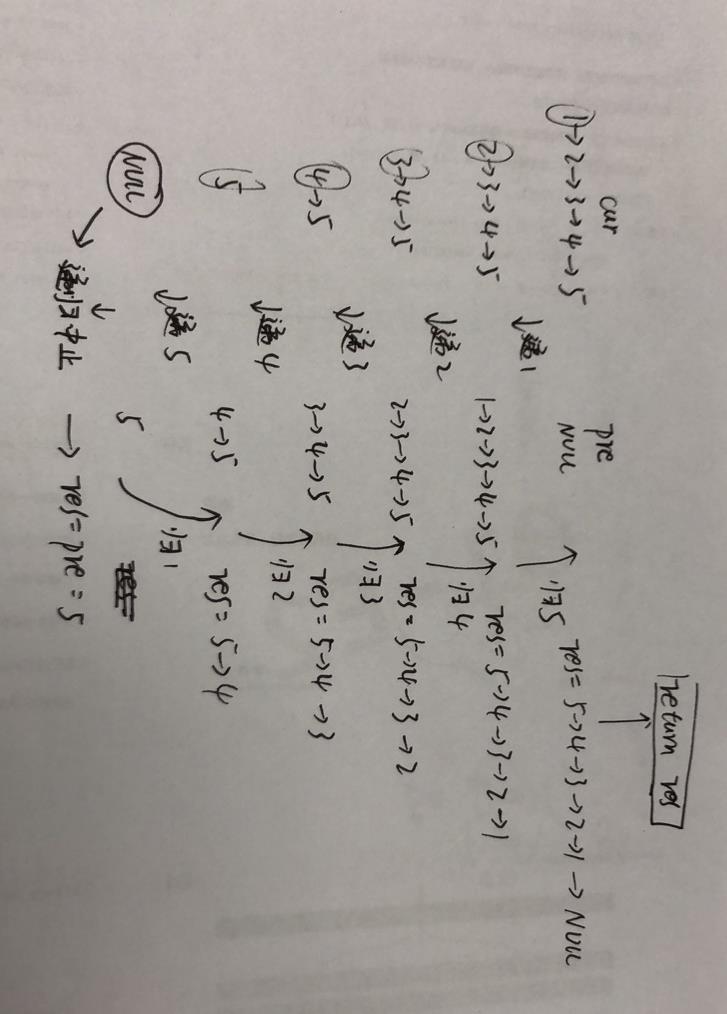 return res
cur pre
1→2→3→4→5 NULL res= 5→4→3→2→1→NULL
↓递1 归5
2→3→4→5 1→2→3→4→5 res=5→4→3→2→1
↓递2 归4
3→4→5 2→3→4→5 res=5→4→3→2
↓递3 归3
4→5 3→4→5 res=5→4→3
↓递4 归2
5 4→5 res=5→4
↓递5 归1
NULL 5
递归中止 → res=pre=5